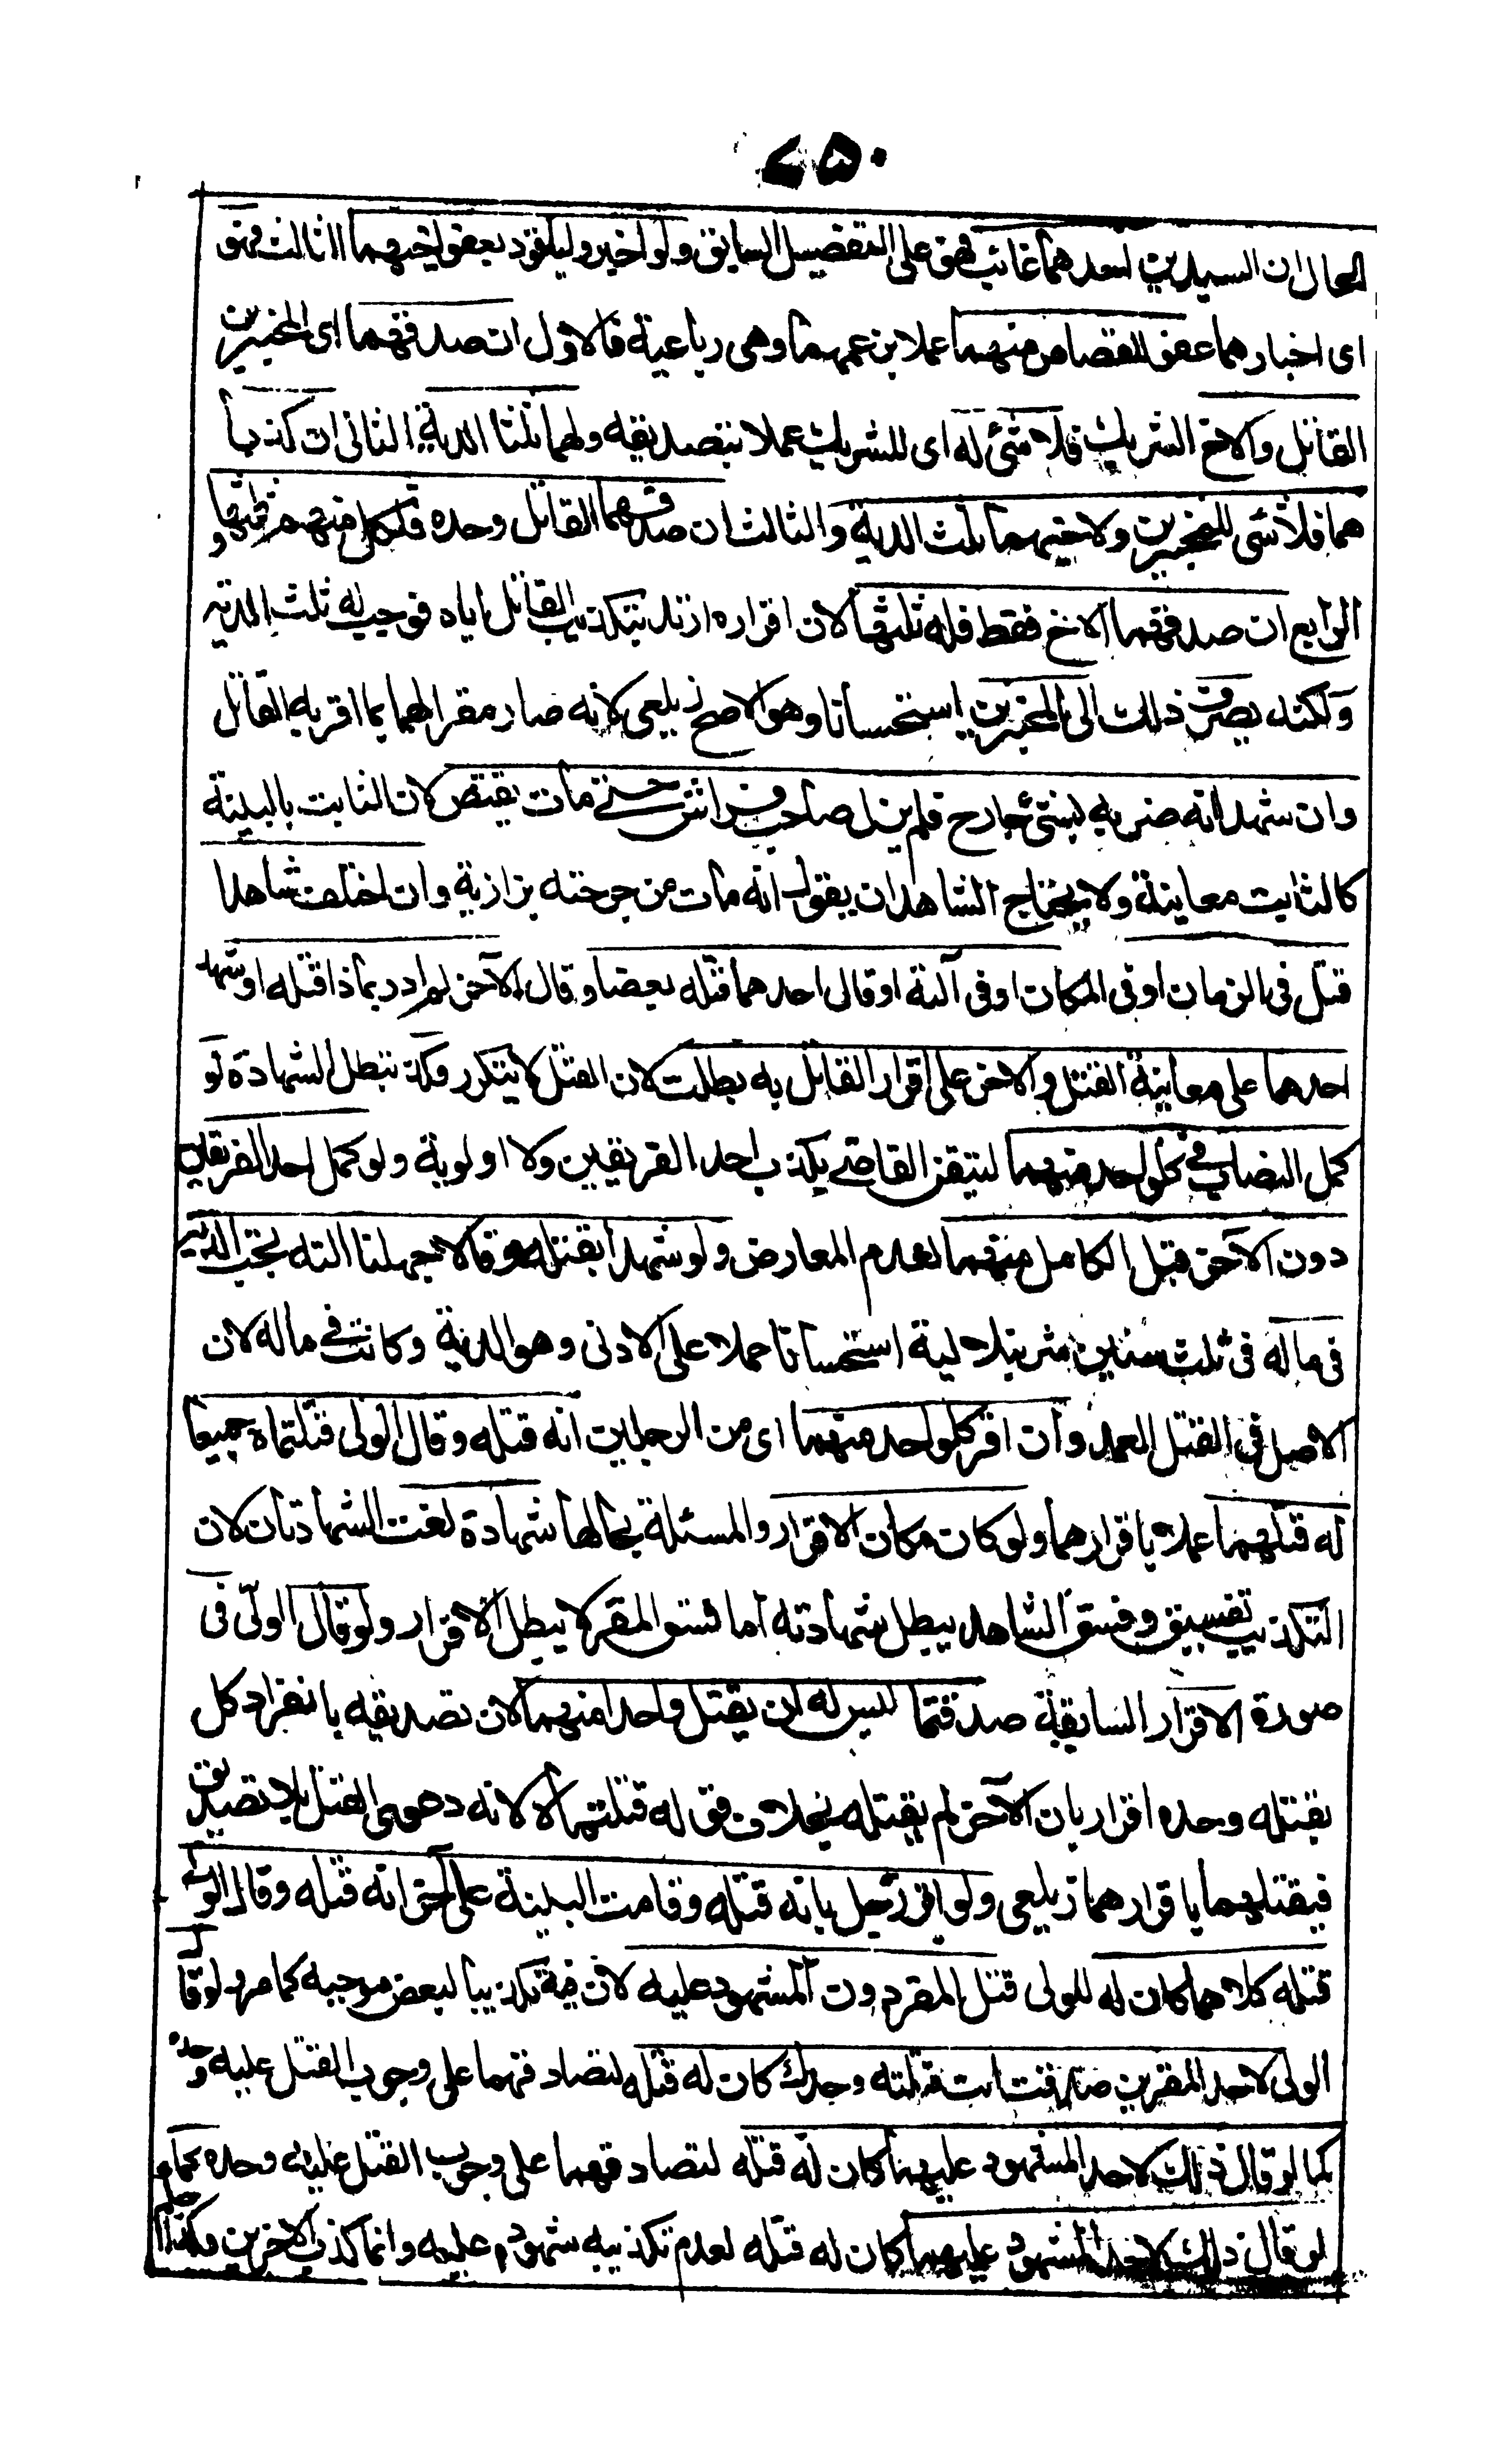 ٧٥٠
الحال ان السيدين احدهما غائب فهو على التفصيل السابق ولو اخبر وليا قود بعفو اخيهما الثالث فهو
اى اخبارهما عفو للقصاص منهما عملا بزعمهما وهى رباعية فالاول ان صدقهما اى المخبرين
القاتل والاخ الشريك فلا شئ له اى للشريك عملا بتصديقه ولهما ثلثا الدية الثانى ان كذبا
هما فلا شى للمخبرين ولاخيهما ثلث الدية والثالث ان صدقهما القاتل وحده فلكل منهم ثلثها و
الرابع ان صدقهما الاخ فقط فله ثلثها لان اقراره ارتد بتكذيب القاتل اياه فوجب له ثلث الدية
ولكنه يصرف ذلك الى المخبرين استحسانا وهو الاصح زيلعى لانه صار مقرا لهما بما اقر به القاتل
وان شهدا انه ضربه بشئ جارح فلم يزل صاحب فراش حتى مات يقتص لان الثابت بالبينة
كالثابت معاينة ولا يحتاج الشاهد ان يقول انه مات من جرحته بزازية وان اختلف شاهدا
قتل فى الزمان او فى المكان او فى آلته او قال احدهما قتله بعصا وقال الآخر لم ادر بماذا قتله او شهد
احدهما على معاينة القتل والاخر على اقرار القاتل به بطلت لان القتل لا يتكرر وكذا تبطل الشهادة لو
كمل النصاب فى كل واحد منهما لتيقن القاضى بكذب احد الفريقين ولا اولوية ولو كمل احد الفريقين
دون الآخر قبل الكامل منهما لعدم المعارض ولو شهدا بقتله وقالا جهلنا آلته تجب الدية
فى ماله فى ثلث سنين شرنبلالية استحسانا حملا على الادنى وهو الدية وكانت فى ماله لان
الاصل فى القتل العمد وان اقر كل واحد منهما اى من الرجلين انه قتله وقال الولى قتلتماه جميعا
له قتلهما عملا باقرارهما ولو كان مكان الاقرار والمسئلة بحالها شهادة لغت الشهادتان لان
التكذيب تفسيق وفسق الشاهد يبطل شهادته اما فسق المقر لا يبطل الاقرار ولو قال الولى فى
صورة الاقرار السابقة صدقتما ليس له ان يقتل واحدا منهما لان تصديقه بانفراد كل
بقتله وحده اقرار بان الآخر لم يقتله بخلاف قوله قتلتماه لانه دعوى القتل بلا تصديق
فيقتلهما باقرارهما زيلعى ولو اقر رجل بانه قتله وقامت البينة على آخر انه قتله وقال الولى
قتله كلاهما كان له للولى قتل المقر دون المشهود عليه لان فيه تكذيبا لبعض موجبه كما مر ولو قال
الولى لاحد المقرين صدقت انت قتلته وحدك كان له قتله لتصادقهما على وجوب القتل عليه وحده
كما لو قال ذلك لاحد المشهود عليهما كان له قتله لتصادقهما على وجوب القتل عليه وحده
لو قال ذلك لاحد المشهود عليهما كان له قتله لعدم تكذيبه شهود عليه وانما كذب الآخرين وكذا